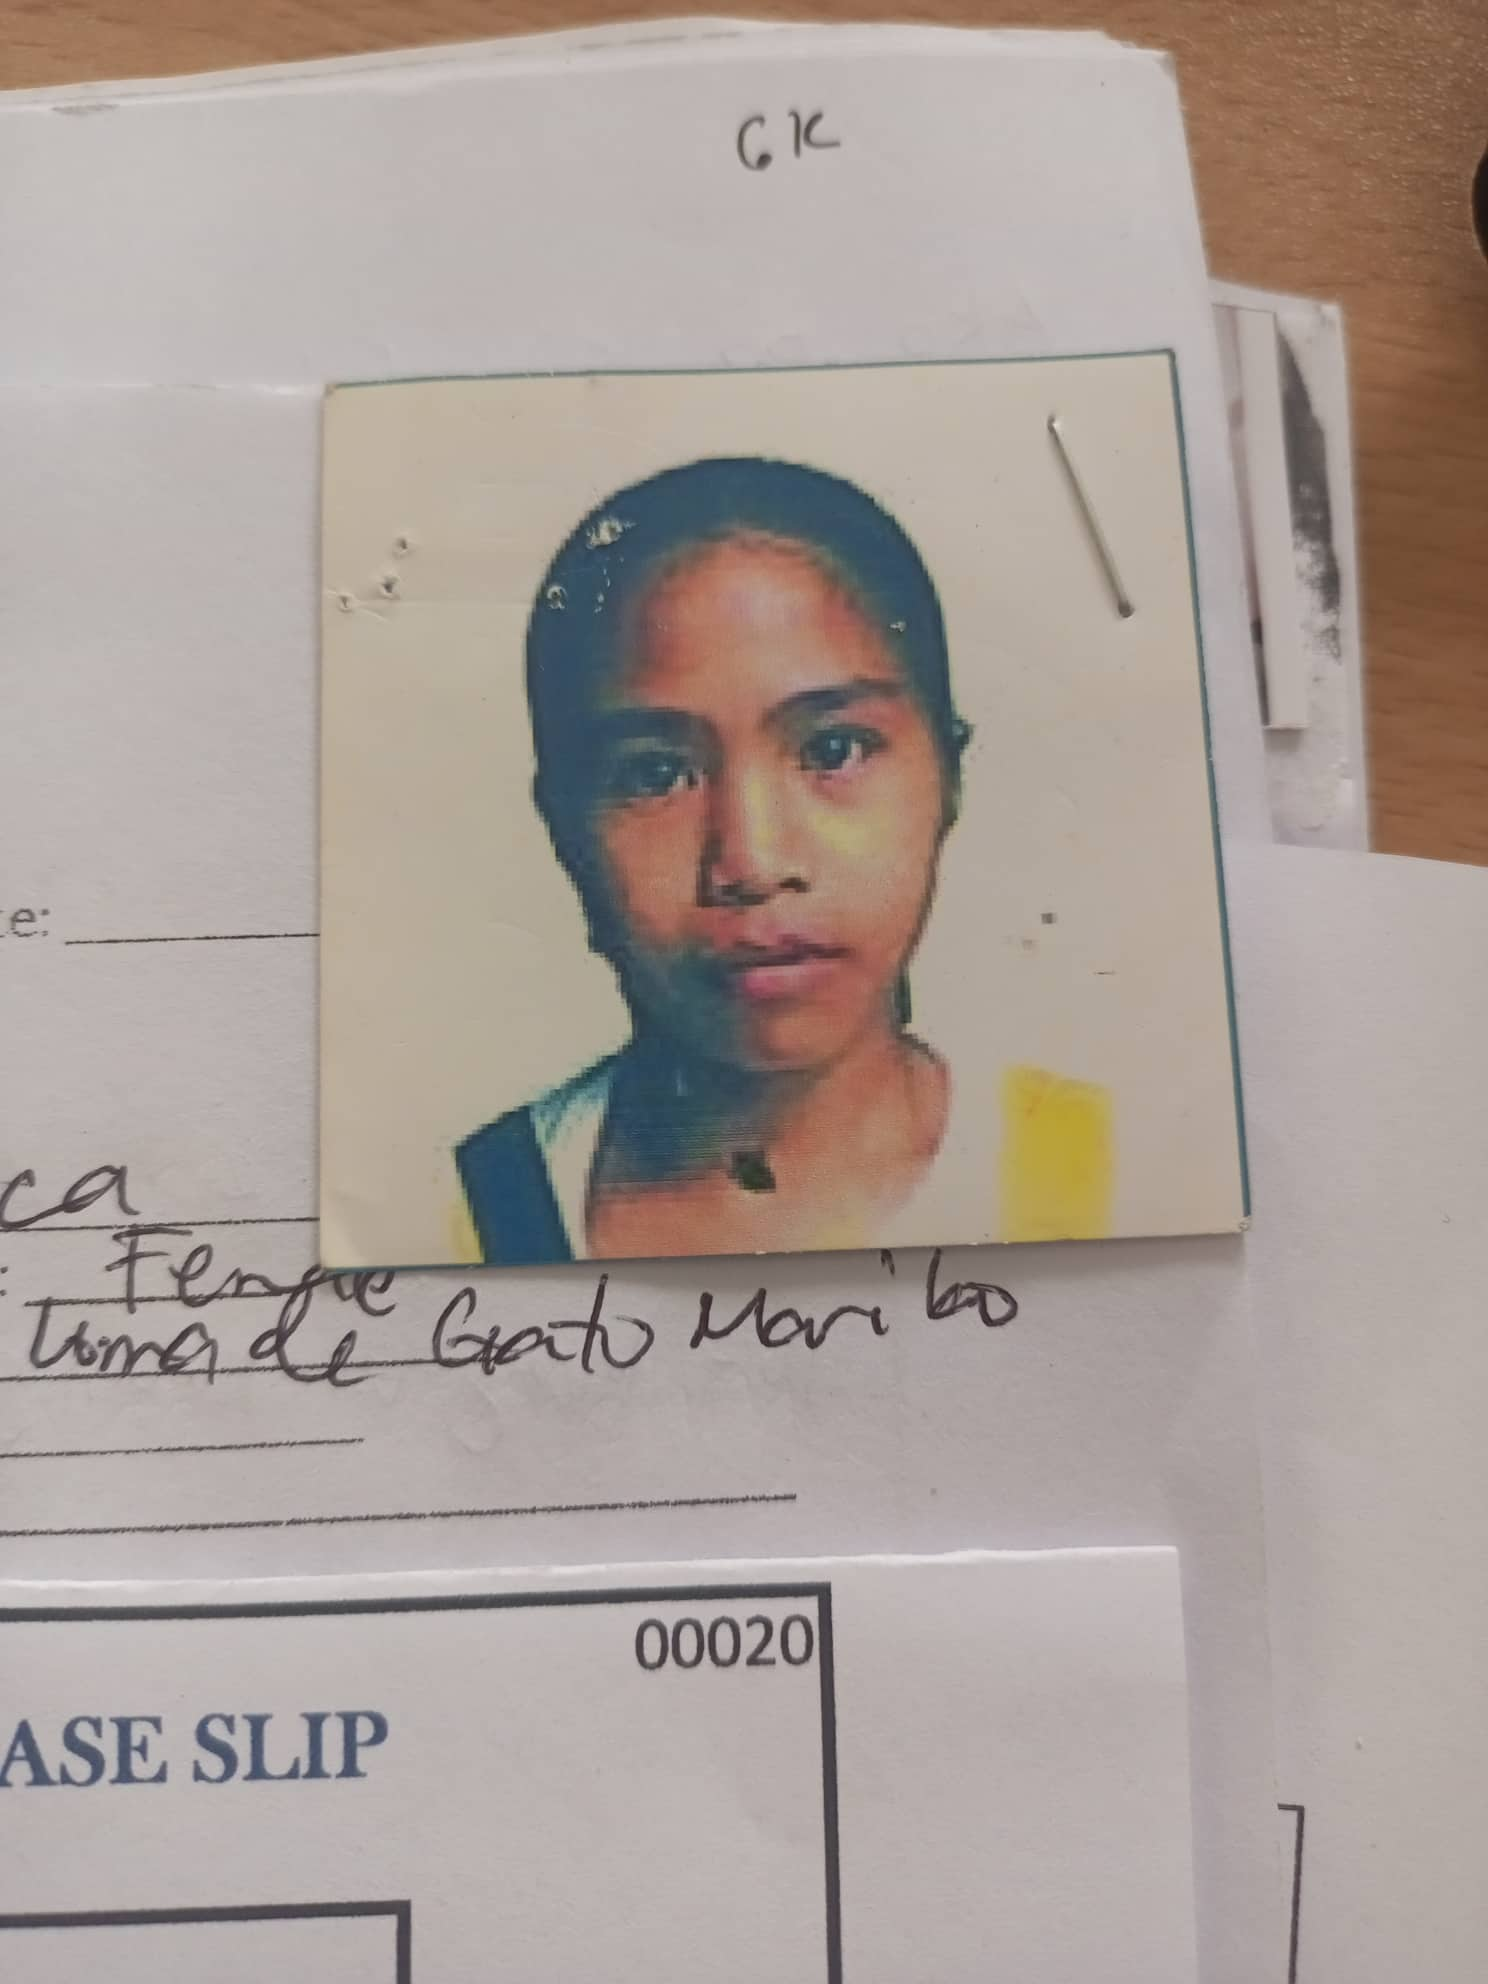 6K
e:
ca
: Female
Loma de Gato Marilao
00020
ASE SLIP